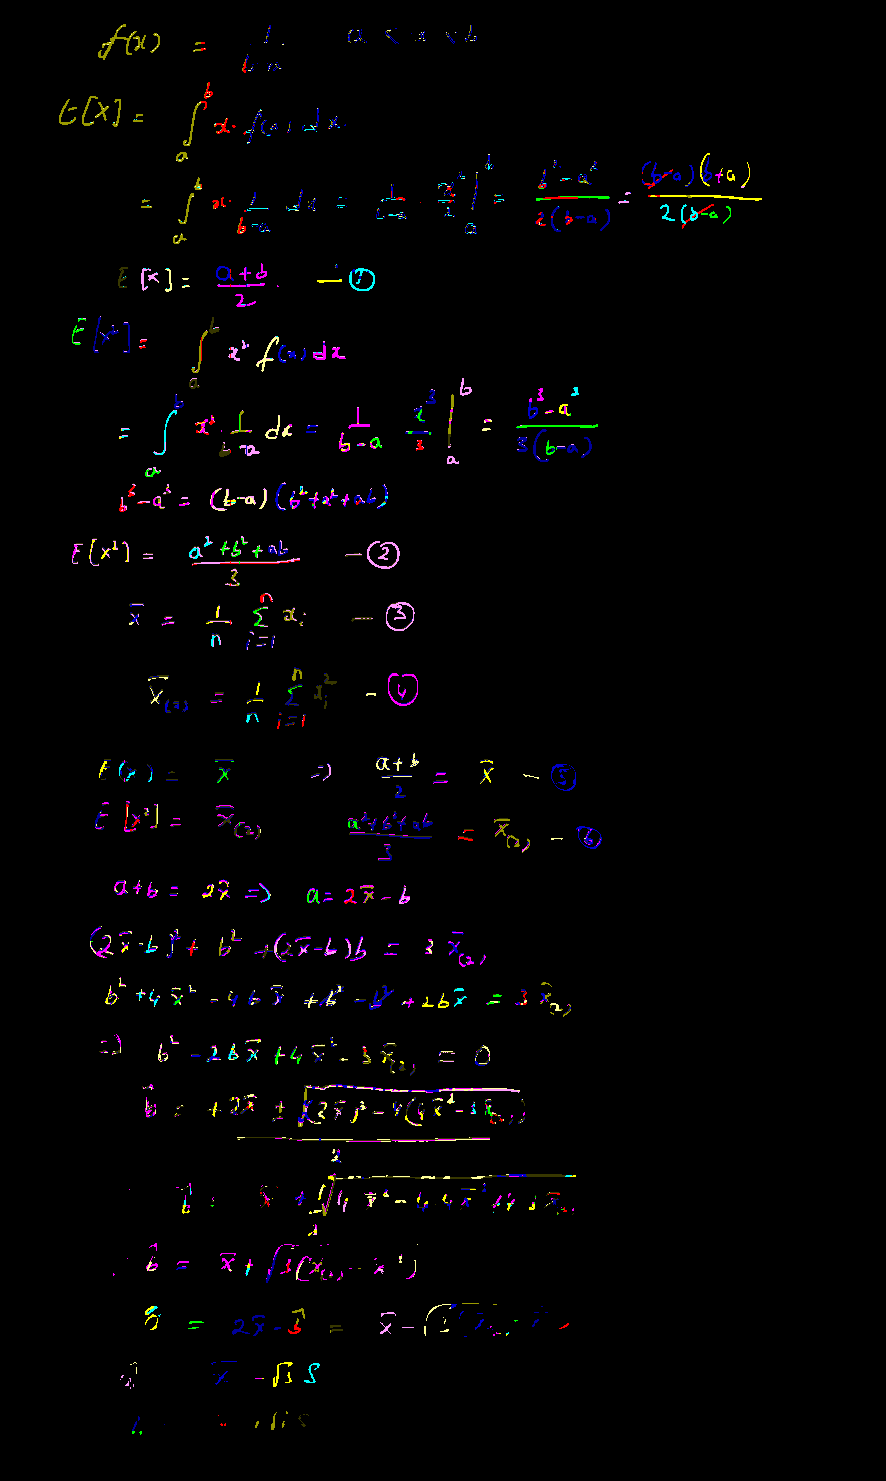 f(x) = 1/(b-a) a < x < b
E[X] = ∫_a^b x · f(x) dx
= ∫_a^b x · 1/(b-a) dx = 1/(b-a) · x²/2 |_a^b = (b² - a²)/(2(b-a)) = (b-a)(b+a)/(2(b-a))
E[x] = (a+b)/2 — ①
E[x²] = ∫_a^b x² f(x) dx
= ∫_a^b x² · 1/(b-a) dx = 1/(b-a) x³/3 |_a^b = (b³ - a³)/(3(b-a))
b³ - a³ = (b-a)(b² + a² + ab)
E[x²] = (a² + b² + ab)/3 — ②
x̄ = 1/n Σ_{i=1}^n x_i — ③
x̄_(2) = 1/n Σ_{i=1}^n x_i² — ④
E(x) = x̄ ⇒ (a+b)/2 = x̄ — ⑤
E[x²] = x̄_(2) (a²+b²+ab)/3 = x̄_(2) — ⑥
a+b = 2x̄ ⇒ a = 2x̄ - b
(2x̄-b)² + b² + (2x̄-b)b = 3 x̄_(2)
b² + 4x̄² - 4bx̄ + b² - b² + 2bx̄ = 3x̄_(2)
⇒ b² - 2bx̄ + 4x̄² - 3x̄_(2) = 0
b̂ = (+2x̄ ± √((2x̄)² - 4(4x̄² - 3x̄_(2))))/2
b̂ = x̄ +
b̂ = x̄ + √3(x̄_(2) - x̄²)
= 2x̄ - b̂ = x̄ -
x̄ - √3 S